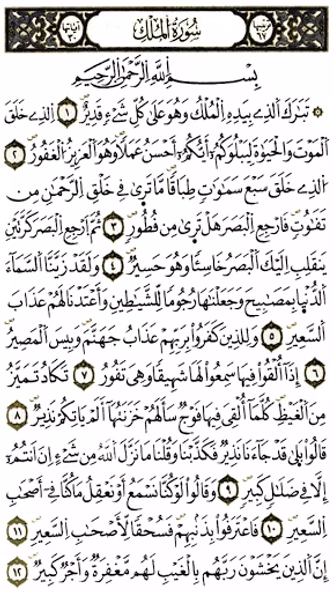 ترتيبها ٦٧ سُورَةُ المُلْكِ آياتها ٣٠
بِسْمِ اللَّهِ الرَّحْمَٰنِ الرَّحِيمِ
تَبَٰرَكَ اَلذِے بِيَدِهِ اِلْمُلْكُ وَهُوَ عَلَىٰ كُلِّ شَےْءٖ قَدِيرٌ ١ اِلذِے خَلَقَ
اَلْمَوْتَ وَالْحَيَوٰةَ لِيَبْلُوَكُمُۥٓ أَيُّكُمُۥٓ أَحْسَنُ عَمَلاٗ وَهُوَ اَلْعَزِيزُ اُلْغَفُورُ ٢
اُلذِے خَلَقَ سَبْعَ سَمَٰوَٰتٖ طِبَاقاٗ مَّا تَرَىٰ فِے خَلْقِ اِلرَّحْمَٰنِ مِن
تَفَٰوُتٖ فَارْجِعِ اِلْبَصَرَ هَلْ تَرَىٰ مِن فُطُورٖ ٣ ثُمَّ اَرْجِعِ اِلْبَصَرَ كَرَّتَيْنِ
يَنقَلِبِ اِلَيْكَ اَلْبَصَرُ خَاسِئاٗ وَهُوَ حَسِيرٌ ٤ وَلَقَدْ زَيَّنَّا اَلسَّمَآءَ
اَلدُّنْيَا بِمَصَٰبِيحَ وَجَعَلْنَٰهَا رُجُوماٗ لِّلشَّيَٰطِينِ وَأَعْتَدْنَا لَهُمْ عَذَابَ
اَلسَّعِيرِ ٥ وَلِلذِينَ كَفَرُواْ بِرَبِّهِمْ عَذَابُ جَهَنَّمَ وَبِيسَ اَلْمَصِيرُ
٦ إِذَآ أُلْقُواْ فِيهَا سَمِعُواْ لَهَا شَهِيقاٗ وَهِيَ تَفُورُ ٧ تَكَادُ تَمَيَّزُ
مِنَ اَلْغَيْظِ كُلَّمَآ أُلْقِيَ فِيهَا فَوْجٞ سَأَلَهُمْ خَزَنَتُهَآ أَلَمْ يَاتِكُمْ نَذِيرٞ ٨
قَالُواْ بَلَىٰ قَدْ جَآءَنَا نَذِيرٞ فَكَذَّبْنَا وَقُلْنَا مَا نَزَّلَ اَللَّهُ مِن شَےْءٍ اِنَ اَنتُمُۥٓ
إِلَّا فِے ضَلَٰلٖ كَبِيرٖ ٩ وَقَالُواْ لَوْ كُنَّا نَسْمَعُ أَوْ نَعْقِلُ مَا كُنَّا فِےٓ أَصْحَٰبِ
اِلسَّعِيرِ ١٠ فَاعْتَرَفُواْ بِذَنۢبِهِمْ فَسُحْقاٗ لِّأَصْحَٰبِ اِلسَّعِيرِ ١١
إِنَّ اَلذِينَ يَخْشَوْنَ رَبَّهُم بِالْغَيْبِ لَهُم مَّغْفِرَةٞ وَأَجْرٞ كَبِيرٞ ١٢